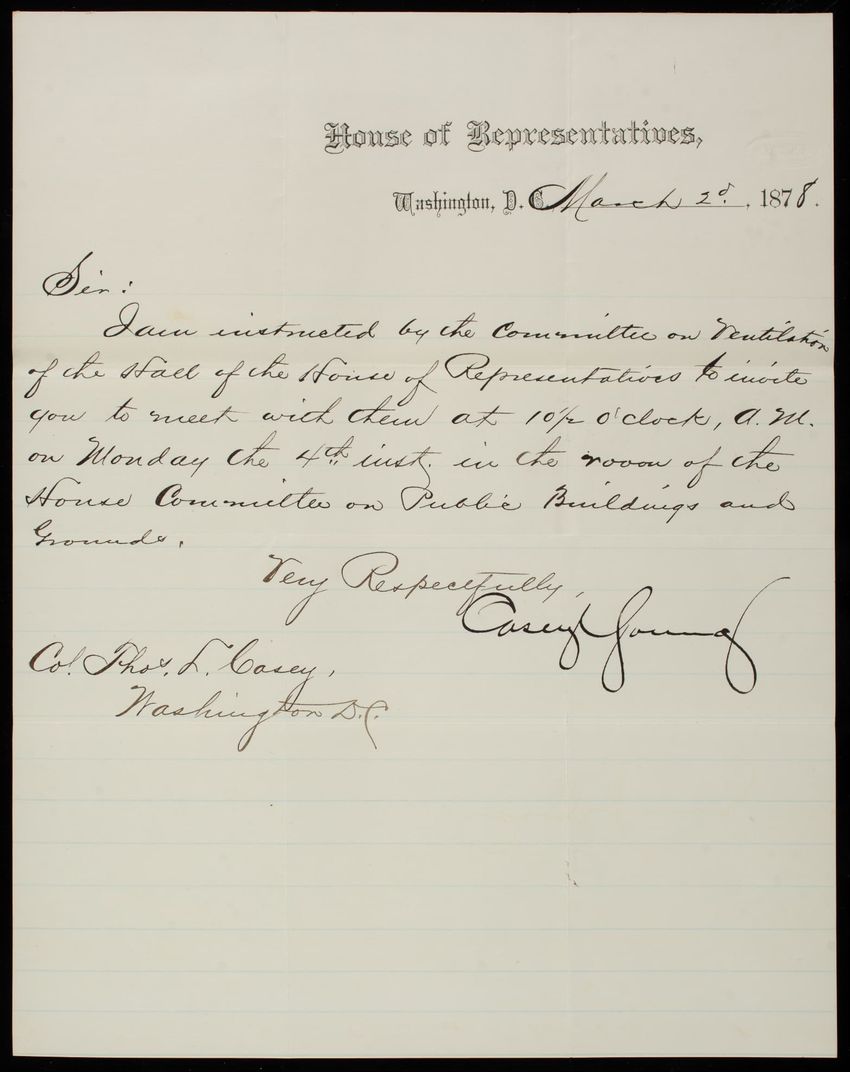 House of Representatives,
Washington, D. C. March 2d., 1878.
Sir:
I am instructed by the Committee on Ventilation
of the Hall of the House of Representatives to invite
you to meet with them at 10 1/2 O'clock, A. M.
on Monday the 4th inst. in the room of the
House Committee on Public Buildings and
Grounds.
Very Respectfully,
Casey Young
Col. Thos. L. Casey,
Washington D.C.